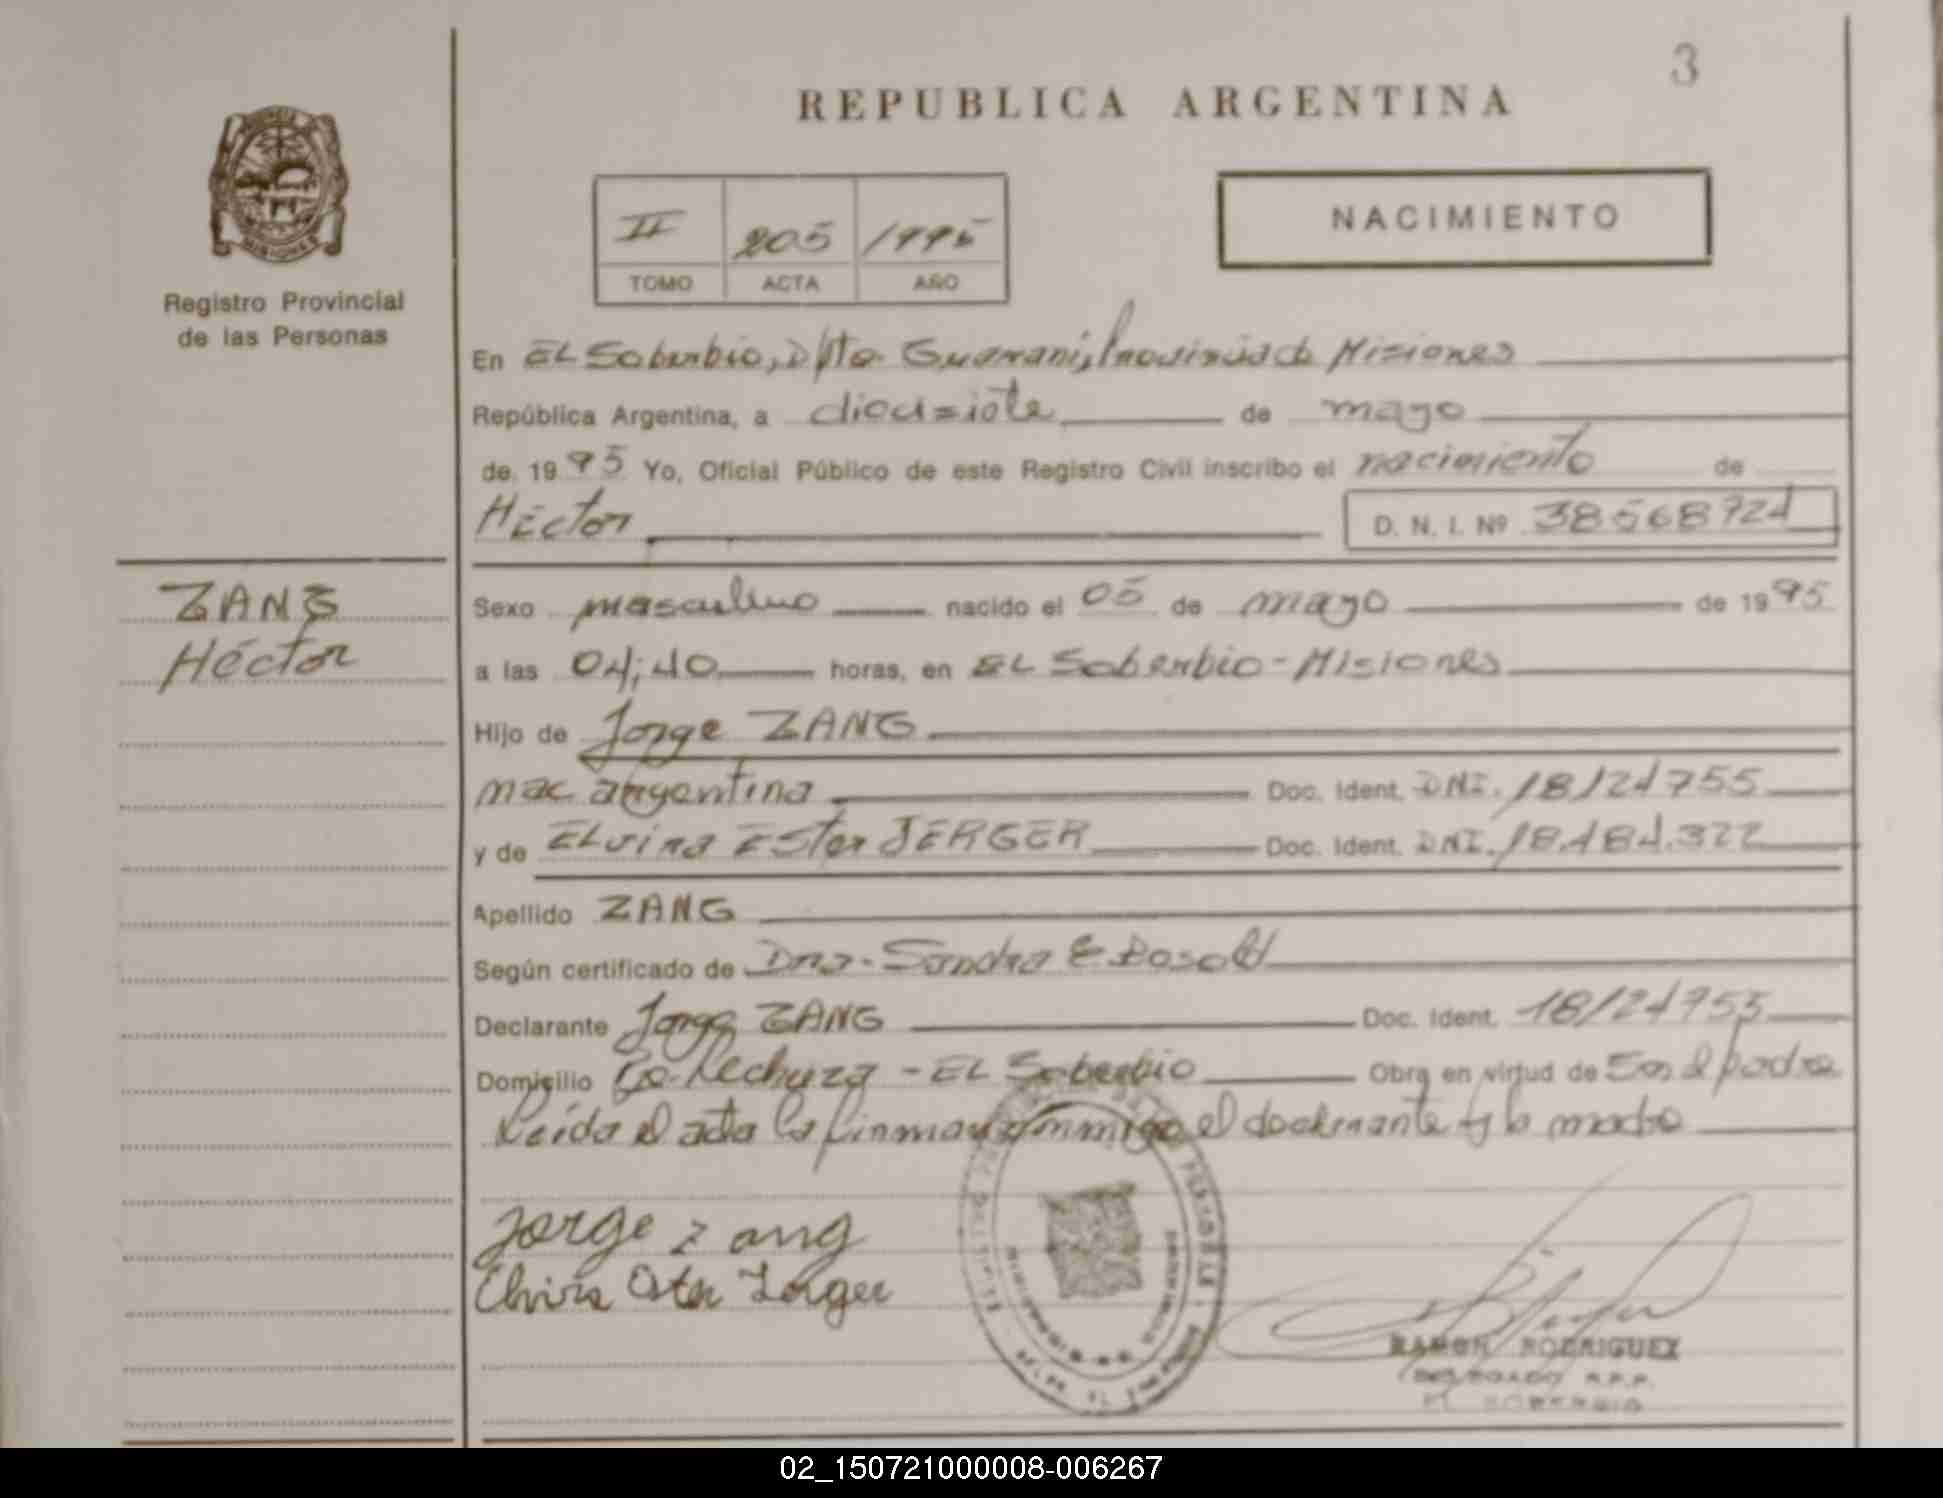 3
REPUBLICA ARGENTINA
NACIMIENTO
II 205 1995
TOMO ACTA AÑO
Registro Provincial
de las Personas
En EL Soberbio, Dpto Guarani, Provincia de Misiones
República Argentina, a diecisiete de mayo
de 1995 Yo, Oficial Público de este Registro Civil inscribo el nacimiento de
Héctor D. N. I. Nº 38568724
ZANG
Héctor
Sexo masculino nacido el 05 de mayo de 1995
a las 04;40 horas, en EL Soberbio - Misiones
Hijo de Jorge ZANG
nac argentina Doc. Ident. DNI. 18124755
y de ELvira Ester JERGER Doc. Ident. DNI. 18.484.322
Apellido ZANG
Según certificado de Dra. Sandra E
Declarante Jorge ZANG Doc. Ident. 18124755
Domicilio Lechuza - EL Soberbio Obra en virtud de Ser el padre
Leída el acta la firman conmigo el declarante y la madre
Jorge Zang
Elvira Ester Jerger
RAMON RODRIGUEZ
DELEGADO R.P.P.
EL SOBERBIO
02_150721000008-006267